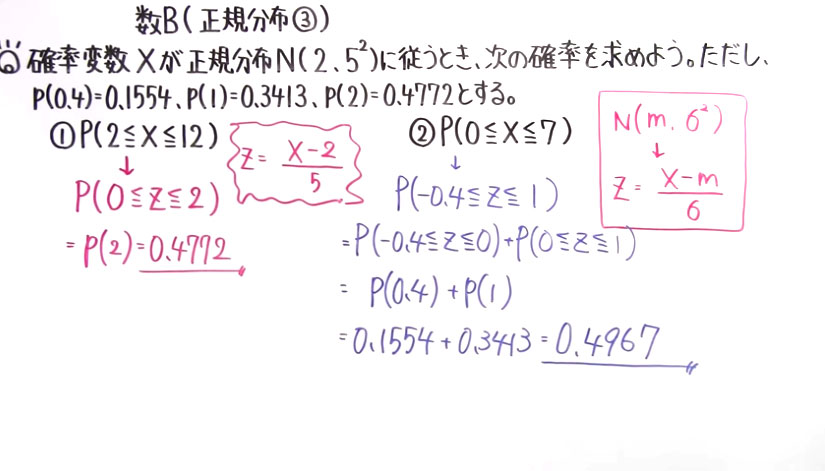 数B(正規分布③)
確率変数Xが正規分布N(2、5²)に従うとき、次の確率を求めよう。ただし、
P(0.4)=0.1554、P(1)=0.3413、P(2)=0.4772とする。
①P(2≦X≦12)
↓
P(0≦Z≦2)
=P(2)=0.4772
Z= X-2/5
②P(0≦X≦7)
↓
P(-0.4≦Z≦1)
=P(-0.4≦Z≦0)+P(0≦Z≦1)
= P(0.4)+P(1)
=0.1554+0.3413=0.4967
N(m, σ²)
↓
Z= X-m/σ